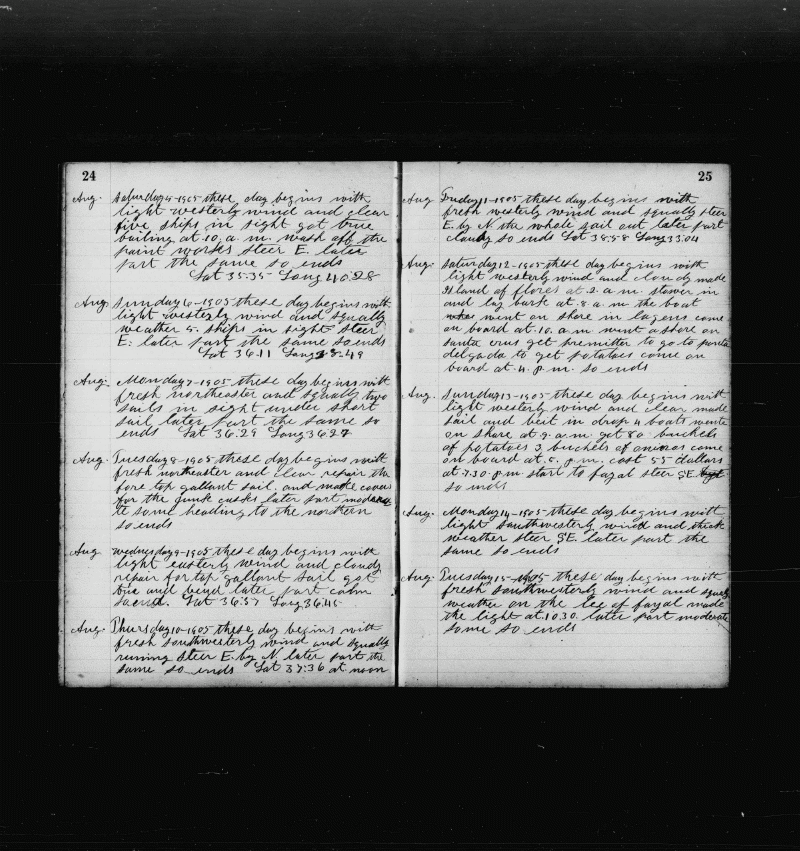 24
Aug. Saturday 5-1905 these day begins with
light westerly wind and clear
five ships in sight got true
boiling at 10. a. m. wash off the
paint works steer E. later
part the same so ends
Lat 35:35 Long 40:28
Aug. Sunday 6-1905 these day begins with
light westerly wind and squally
weather 5. ships in sight steer
E. later part the same so ends
Lat 36.11 Long 38:49
Aug. Monday 7-1905 these day begins with
fresh northeaster and squally two
sails in sight under short
sail later part the same so
ends Lat 36:29 Long 36:27
Aug. Tuesday 8-1905 these day begins with
fresh northeaster and clear repair the
fore top gallant sail. and made covers
for the junk casks later part moderate
te some heading to the northern
so ends
Aug. Wednesday 9-1905 these day begins with
light easterly wind and cloudy
repair for top gallant sail got
true and bend later part calm
so ends. Lat 36:57 Long 36:45
Aug. Thursday 10-1905 these day begins with
fresh southwesterly wind and squally
runing steer E. by N. later part the
same so ends Lat 37:36 at noon
25
Aug. Friday 11-1905 these day begins with
fresh westerly wind and squally steer
E. by N. the whole sail out later part
cloudy so ends Lat 38:58 Long 33:04
Aug. Saturday 12-1905 these day begins with
light westerly wind and cloudy made
Island of flores at 2. a. m. stower in
and lay back at 8. a. m. the boat
went on shore in lagens come
on board at 10. a. m. went a shore on
santa crus get premitter to go to punta
delgada to get potatoes come on
board at 4. p. m. so ends
Aug. Sunday 13-1905 these day begins with
light westerly wind and clear made
sail and beit in drop 4 boats wente
on shore at 9. a. m. get 80 buckets
of potatoes 3 buckets of onions come
on board at 5. p. m. cost 55 dollars
at 7.30 p. m start to fayal steer SE.
so ends
Aug. Monday 14-1905 these day begins with
light southwesterly wind and thick
weather steer SE. later part the
same so ends
Aug. Tuesday 15-1905 these day begins with
fresh southwesterly wind and squaly
weather on the lee of fayal made
the light at 10.30. later part moderate
some so ends